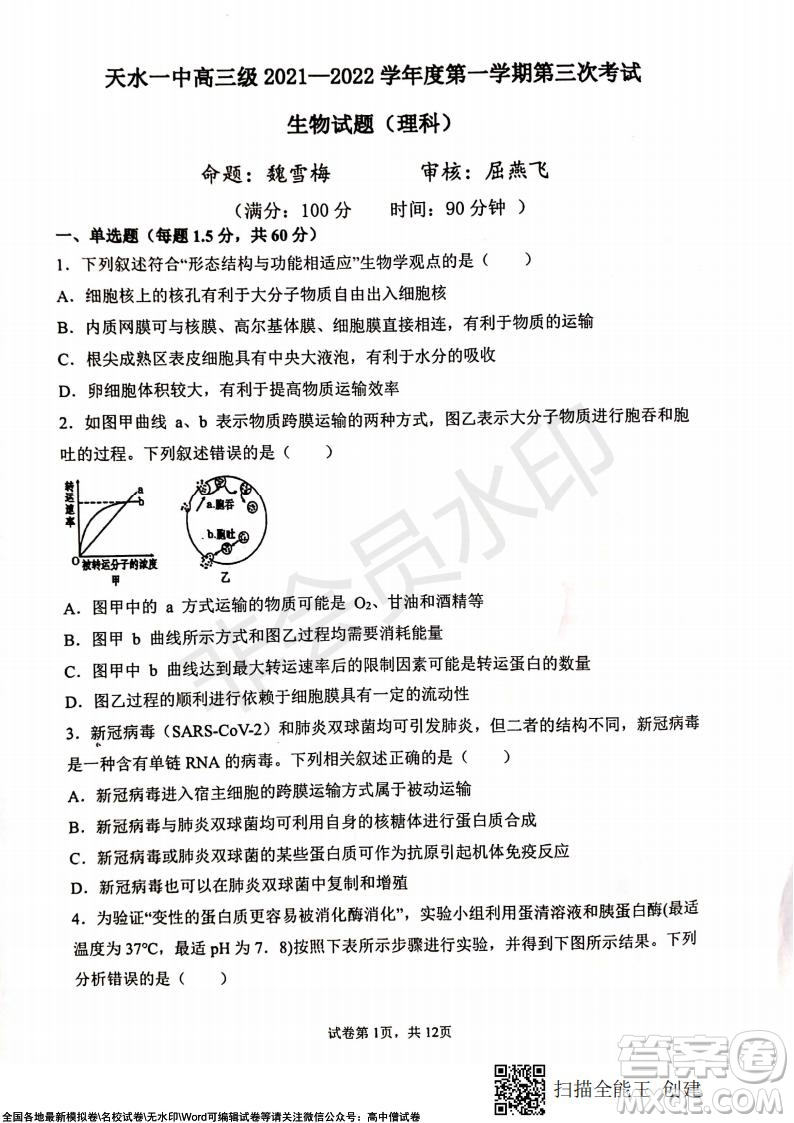 天水一中高三级 2021—2022 学年度第一学期第三次考试
生物试题（理科）
命题：魏雪梅 审核：屈燕飞
（满分：100 分 时间：90 分钟 ）
一、单选题（每题 1.5 分，共 60 分）
1．下列叙述符合“形态结构与功能相适应”生物学观点的是（ ）
A．细胞核上的核孔有利于大分子物质自由出入细胞核
B．内质网膜可与核膜、高尔基体膜、细胞膜直接相连，有利于物质的运输
C．根尖成熟区表皮细胞具有中央大液泡，有利于水分的吸收
D．卵细胞体积较大，有利于提高物质运输效率
2．如图甲曲线 a、b 表示物质跨膜运输的两种方式，图乙表示大分子物质进行胞吞和胞
吐的过程。下列叙述错误的是（ ）
转运速率
a
b
O
被转运分子的浓度
甲
a.胞吞
b.胞吐
乙
A．图甲中的 a 方式运输的物质可能是 O₂、甘油和酒精等
B．图甲 b 曲线所示方式和图乙过程均需要消耗能量
C．图甲中 b 曲线达到最大转运速率后的限制因素可能是转运蛋白的数量
D．图乙过程的顺利进行依赖于细胞膜具有一定的流动性
3．新冠病毒（SARS-CoV-2）和肺炎双球菌均可引发肺炎，但二者的结构不同，新冠病毒
是一种含有单链 RNA 的病毒。下列相关叙述正确的是（ ）
A．新冠病毒进入宿主细胞的跨膜运输方式属于被动运输
B．新冠病毒与肺炎双球菌均可利用自身的核糖体进行蛋白质合成
C．新冠病毒与肺炎双球菌的某些蛋白质可作为抗原引起机体免疫反应
D．新冠病毒也可以在肺炎双球菌中复制和增殖
4．为验证“变性的蛋白质更容易被消化酶消化”，实验小组利用蛋清溶液和胰蛋白酶(最适
温度为 37℃，最适 pH 为 7．8)按照下表所示步骤进行实验，并得到如下图所示结果。下列
分析错误的是（ ）
试卷第 1页，共 12页
非会员水印
答案圈
扫描全能王 创建
全国各地最新模拟卷\名校试卷\无水印\Word可编辑试卷等请关注微信公众号：高中僧试卷